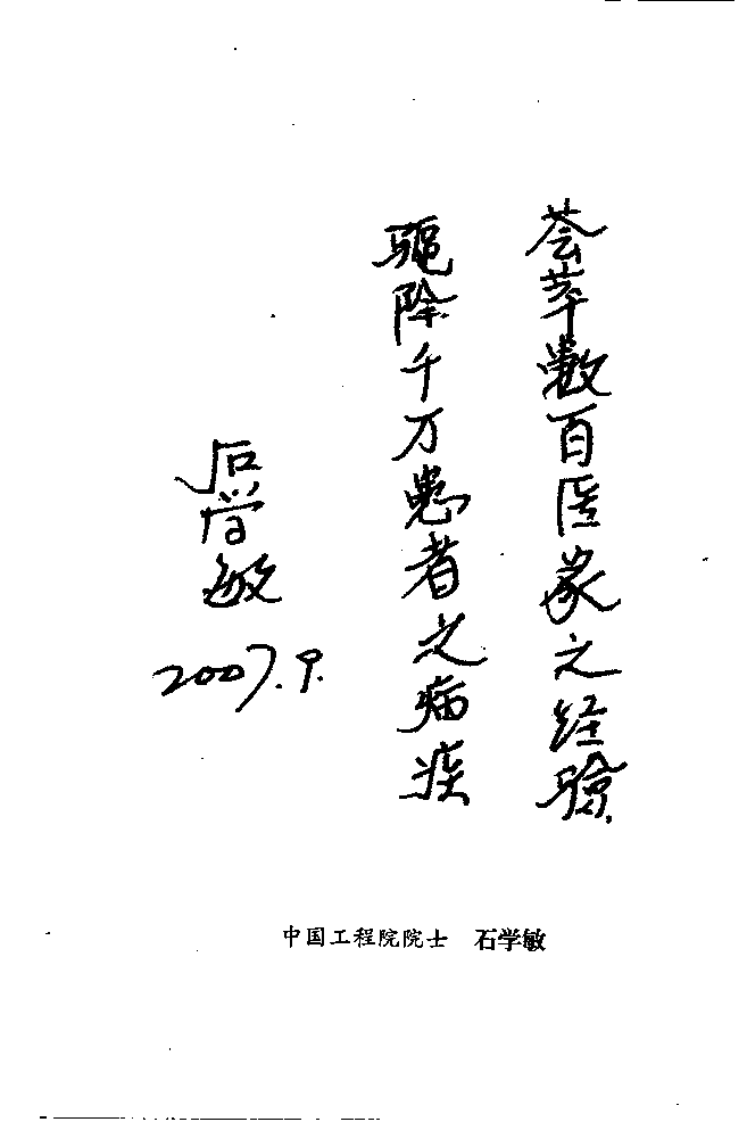 荟萃数百医家之经验
驱除千万患者之病疾
石学敏
2007.9.
中国工程院院士 石学敏